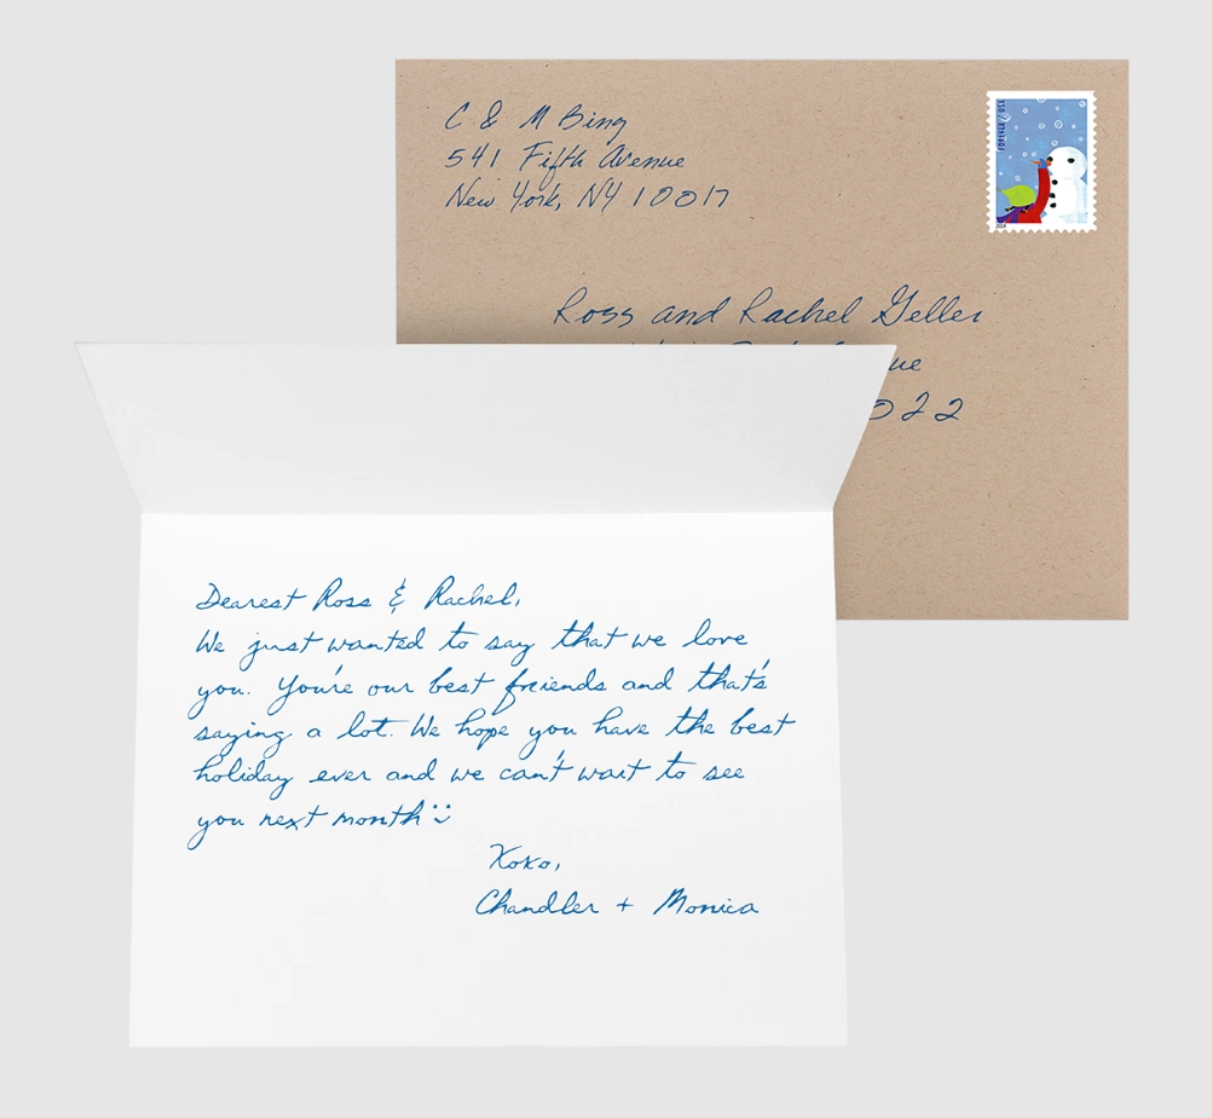 C & M Bing
541 Fifth Avenue
New York, NY 10017
FOREVER / USA
2014
Ross and Rachel Geller
Dearest Ross & Rachel,
We just wanted to say that we love
you. You're our best friends and that's
saying a lot. We hope you have the best
holiday ever and we can't wait to see
you next month :)
Xoxo,
Chandler + Monica